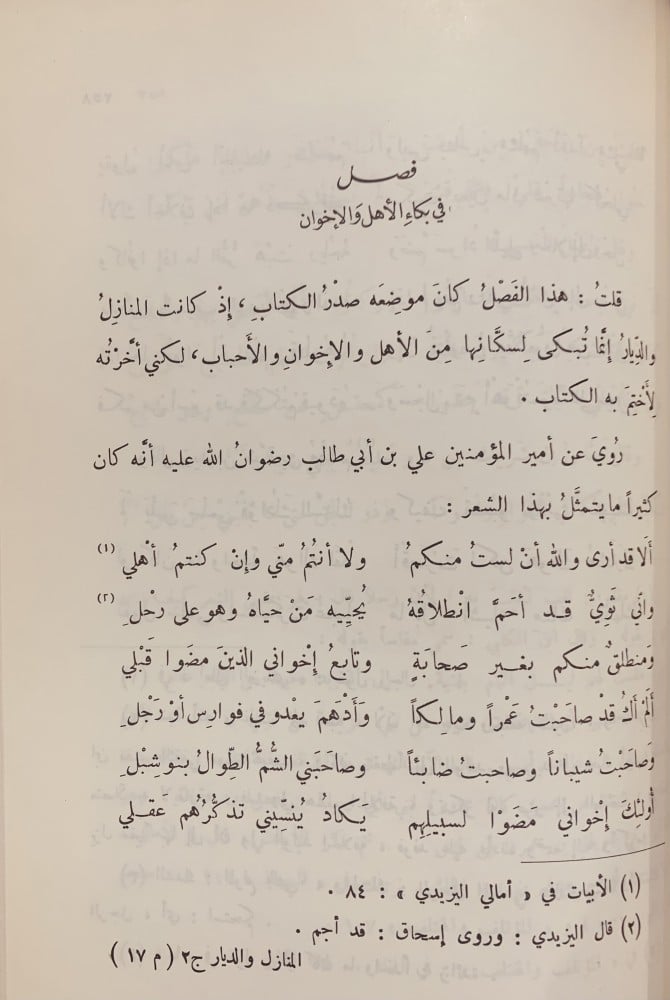 فصل
في بكاء الأهل والإخوان
قلتُ : هذا الفَصْلُ كانَ موضِعَه صدْرُ الكتابِ ، إذْ كانت المنازِلُ
والدِّيارُ إنَّما تُبكى لِسكَّانِها مِنَ الأهل والإخوانِ والأحباب ، لكني أخَّرْتُه
لِأختِمَ به الكتاب .
رُويَ عن أمير المؤمنين علي بن أبي طالب رضوانُ الله عليه أنَّه كان
كثيراً ما يتمثَّلُ بهذا الشعر :
ألَا قد أرى والله أنْ لستُ منكمُ ولا أنتُمُ منّي وإنْ كنتمُ أهْلي (١)
وإنّي ثَوِيٌّ قد أحَمَّ انْطلاقُهُ يُحيِّيه مَنْ حيَّاهُ وهو على رحْلِ (٢)
وَمنطلقٌ منكم بغير صَحابَةٍ وتابعُ إخْواني الذينَ مضَوا قَبْلي
ألَمْ أكُ قدْ صاحَبْتُ عَمْراً ومالِكاً وَأدْهَمَ يعْدو في فوارِس أوْ رَجْلِ
وَصاحَبْتُ شيباناً وصاحبتُ ضابئاً وصاحَبَني الشُّمُّ الطِّوالُ بنو شِبْلِ
أُولئِكَ إخْواني مَضَوْا لسبيلِهِم يَكادُ يُنَسِّيني تذكُّرُهُم عَقلي
(١) الأبيات في « أمالي اليزيدي » : ٨٤ .
(٢) قال اليزيدي : وروى إسحاق : قد أجم .
المنازل والديار ج٢ ( م ١٧ )